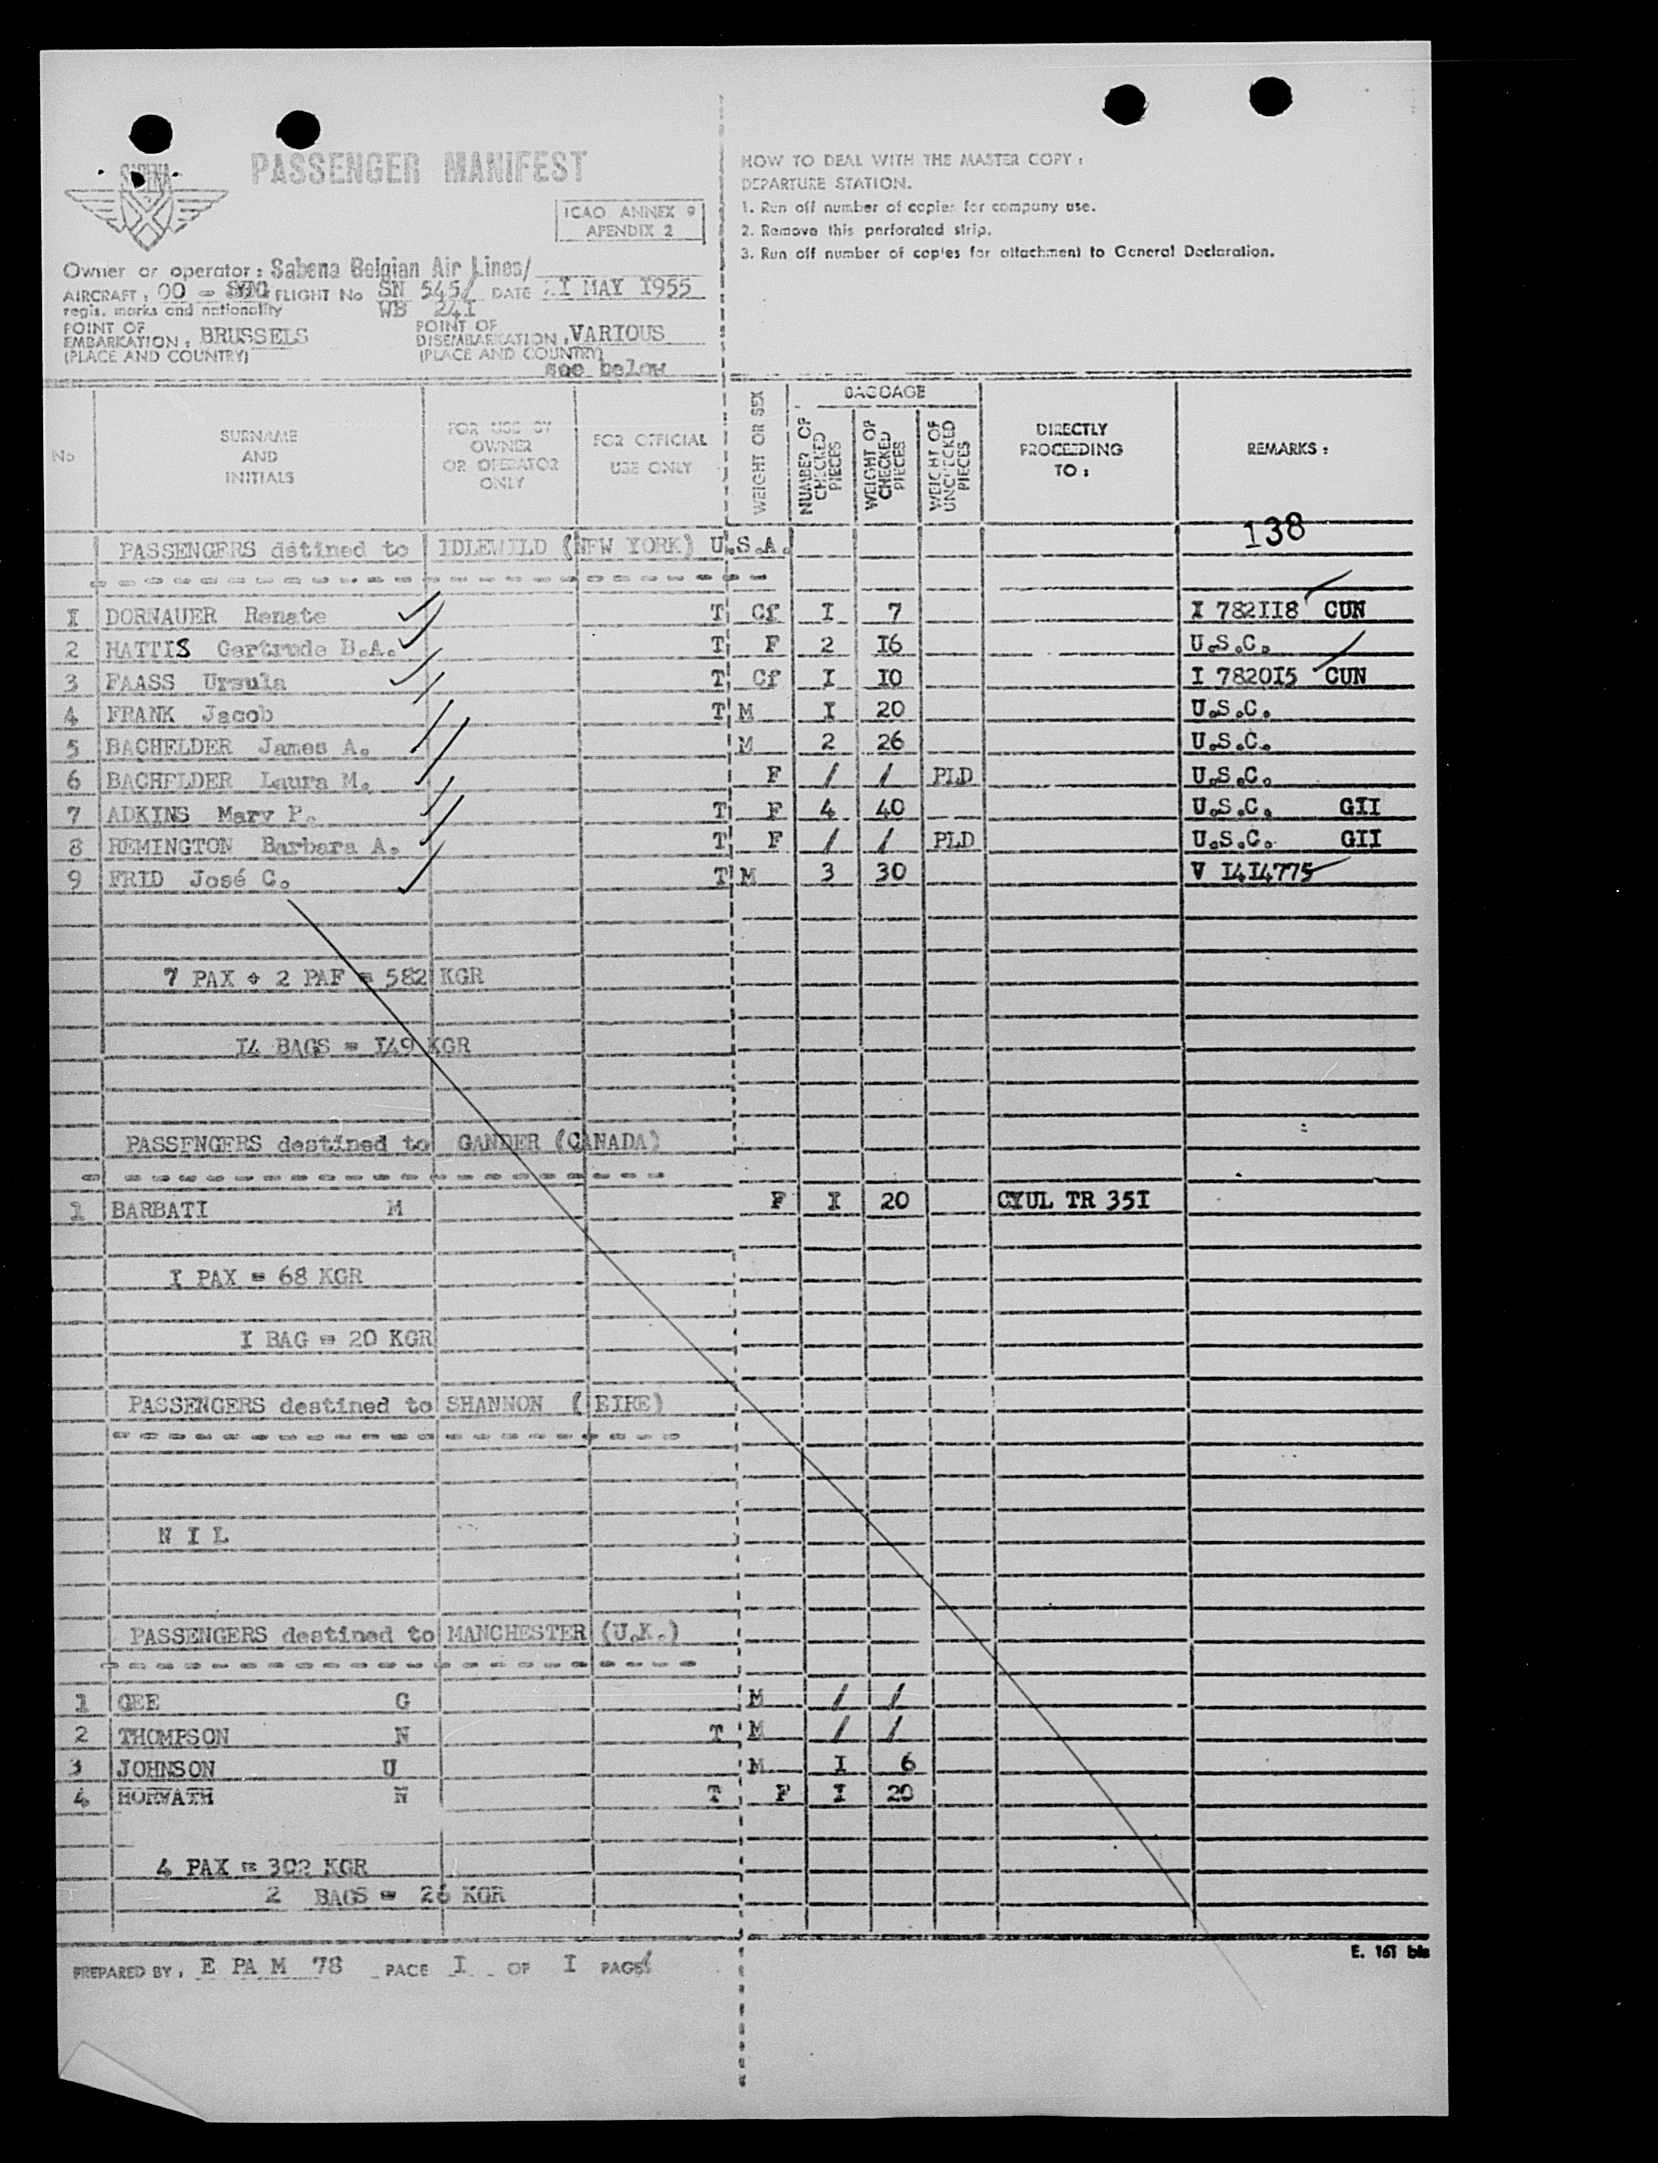 SABENA
PASSENGER MANIFEST
ICAO ANNEX 9
APENDIX 2
Owner or operator : Sabena Belgian Air Lines/
AIRCRAFT : OO - FLIGHT No SN 545/ DATE 1 MAY 1955
regis. marks and nationality WB 24I
POINT OF EMBARKATION : BRUSSELS POINT OF DISEMBARKATION : VARIOUS
(PLACE AND COUNTRY) (PLACE AND COUNTRY)
see below
HOW TO DEAL WITH THE MASTER COPY :
DEPARTURE STATION.
1. Run off number of copies for company use.
2. Remove this perforated strip.
3. Run off number of copies for attachment to General Declaration.
No
SURNAME AND INITIALS
FOR USE BY OWNER OR OPERATOR ONLY
FOR OFFICIAL USE ONLY
WEIGHT OR SEX
BAGGAGE
NUMBER OF CHECKED PIECES
WEIGHT OF CHECKED PIECES
WEIGHT OF UNCHECKED PIECES
DIRECTLY PROCEEDING TO :
REMARKS :
138
PASSENGERS dstined to IDLEWILD (NEW YORK) U.S.A.
1 DORNAUER Renate T Cf I 7 I 782II8 CUN
2 HATTIS Gertrude B.A. T F 2 I6 U.S.C.
3 FAASS Ursula T Cf I IO I 782OI5 CUN
4 FRANK Jacob T M I 20 U.S.C.
5 BACHELDER James A. M 2 26 U.S.C.
6 BACHELDER Laura M. F / / PLD U.S.C.
7 ADKINS Mary P. T F 4 40 U.S.C. GII
8 REMINGTON Barbara A. T F / / PLD U.S.C. GII
9 FRID José C. T M 3 30 V I4I4775
7 PAX + 2 PAF = 582 KGR
I4 BAGS = I49 KGR
PASSENGERS destined to GANDER (CANADA)
1 BARBATI M F I 20 CYUL TR 35I
I PAX = 68 KGR
I BAG = 20 KGR
PASSENGERS destined to SHANNON (EIRE)
N I L
PASSENGERS destined to MANCHESTER (U.K.)
1 GEE G M / /
2 THOMPSON N T M / /
3 JOHNSON U M I 6
4 HORVATH N T F I 20
4 PAX = 302 KGR
2 BAGS = 26 KGR
E. 161 bis
PREPARED BY : E PA M 78 PAGE I OF I PAGES